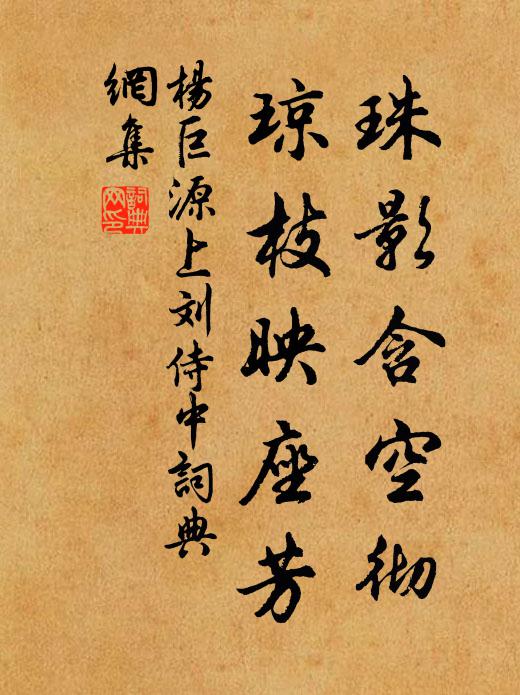 珠影含空彻
琼枝映座芳
楊巨源上刘侍中詞典
網集
詞典网印